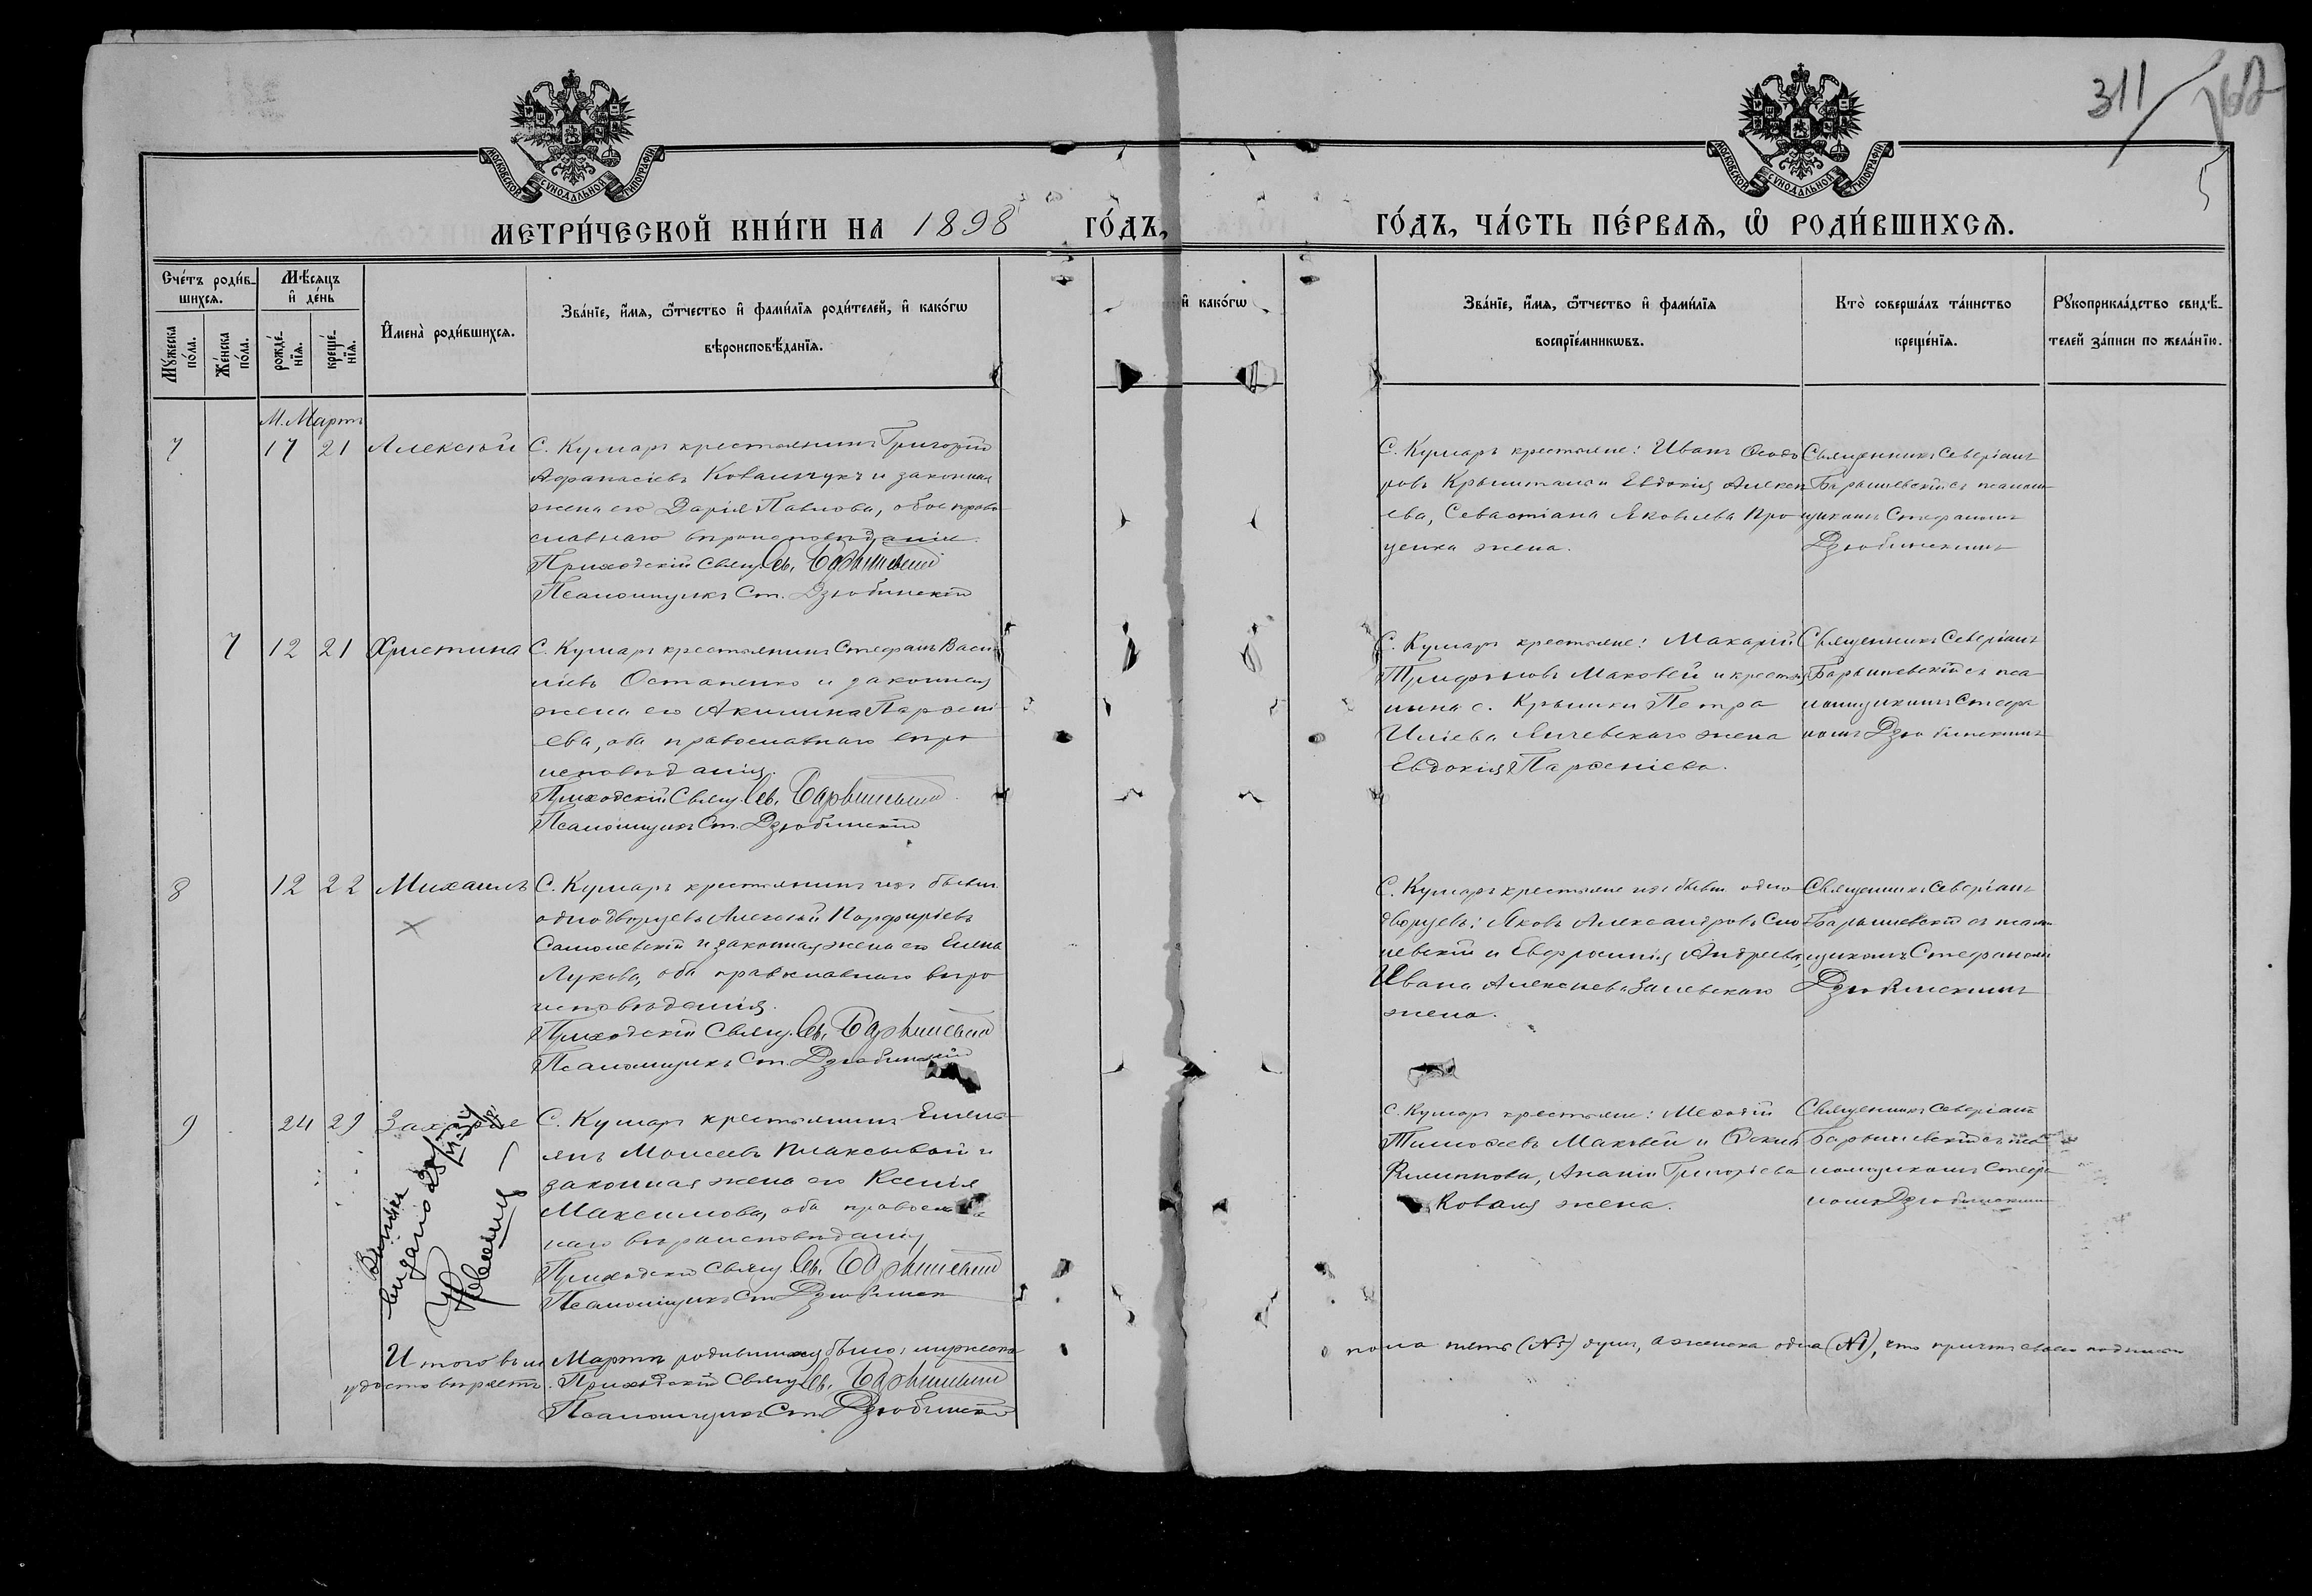 311
5
МОСКОВСКОЙ СѴНОДАЛЬНОЙ ТИПОГРАФІИ
МОСКОВСКОЙ СѴНОДАЛЬНОЙ ТИПОГРАФІИ
МЕТРИ́ЧЕСКОЙ КНИ́ГИ НА 1898 ГО́ДЪ,
ГО́ДЪ, ЧА́СТЬ ПЕ́РВАѦ, Ѽ РОДИ́ВШИХСѦ.
Сче́тъ роди́в-
шихсѧ.
Мꙋ́жеска по́ла.
Же́нска по́ла.
Мѣ́сѧцъ
и҆ де́нь
рожде́-
нїѧ.
креще́-
нїѧ.
И҆мена̀ роди́вшихсѧ.
Зва́нїе, и҆́мѧ, ѻ҆́тчество и҆ фами́лїѧ роди́телей, и҆ како́гѡ
вѣроисповѣ́данїѧ.
и҆ како́гѡ
Зва́нїе, и҆́мѧ, ѻ҆́тчество и҆ фами́лїѧ
воспрїе́мникѡвъ.
Кто̀ соверша́лъ та́инство
креще́нїѧ.
Рꙋкоприкла́дство свидѣ́-
телей за́писи по жела́нїю.
М. Мартъ
7 17 21 Алексѣй
С. Кумаръ крестьянинъ Григорій
Афанасіевъ Ковальчукъ и законная
жена его Дарія Павлова, обое право
славнаго вѣроисповѣданія.
Приходскій Свящ. Сев. Барышевскій
Псаломщикъ Ст. Дзюбинскій
С. Кумаръ крестьяне: Иванъ Ѳеодо
ровъ Крыштанъ и Евдокія Алексѣ
ева, Севастіана Яковлева Про
ценка жена.
Священникъ Северіанъ
Барышевскій съ псалом
щикомъ Стефаномъ
Дзюбинскимъ
7 12 21 Христина
С. Кумаръ крестьянинъ Стефанъ Васи
ліевъ Остапенко и законная
жена его Акилина Парѳені
ева, оба православнаго вѣро
исповѣданія.
Приходскій Свящ. Сев. Барышевскій
Псаломщикъ Ст. Дзюбинскій
С. Кумаръ крестьяне: Макарій
Трифоновъ Маковей и крестья
нина с. Крымки Петра
Иліева жена
Евдокія Парѳеніева.
Священникъ Северіанъ
Барышевскій съ пса
ломщикомъ Стефа
номъ Дзюбинскимъ
8 12 22 Михаилъ
С. Кумаръ крестьянинъ изъ бывш.
однодворцевъ Алексѣй Порфиріевъ
и законная жена его Елена
Лукова, оба православнаго вѣро
исповѣданія.
Приходскій Свящ. Сев. Барышевскій
Псаломщикъ Ст. Дзюбинскій
С. Кумаръ крестьяне изъ бывш. одно
дворцевъ: Яковъ Александровъ Смо
левскій и Евфросинія Андреева,
Ивана Алексѣева Залевскаго
жена.
Священникъ Северіанъ
Барышевскій съ псалом
щикомъ Стефаномъ
Дзюбинскимъ
9 24 29
С. Кумаръ крестьянинъ Емель
янъ Моисеевъ Плаксывый и
законная жена его Ксенія
Максимова, оба православ
наго вѣроисповѣданія
Приходскій Свящ. Сев. Барышевскій
Псаломщикъ Ст. Дзюбинск
С. Кумаръ крестьяне: Меѳодій
Тимоѳеевъ Маковей и Ѳекла
Филиппова, Ананіи Григоріева
Коваля жена.
Священникъ Северіанъ
Барышевскій съ пса
ломщикомъ Стефа
номъ Дзюбинскимъ
выдано
Итого въ м. Мартѣ родившихся было: мужеска
пола пять (№5) душъ, а женска одна (№1), что причтъ своею подписью
удостовѣряетъ. Приходскій Свящ. Сев. Барышевскій
Псаломщикъ Ст. Дзюбинскій